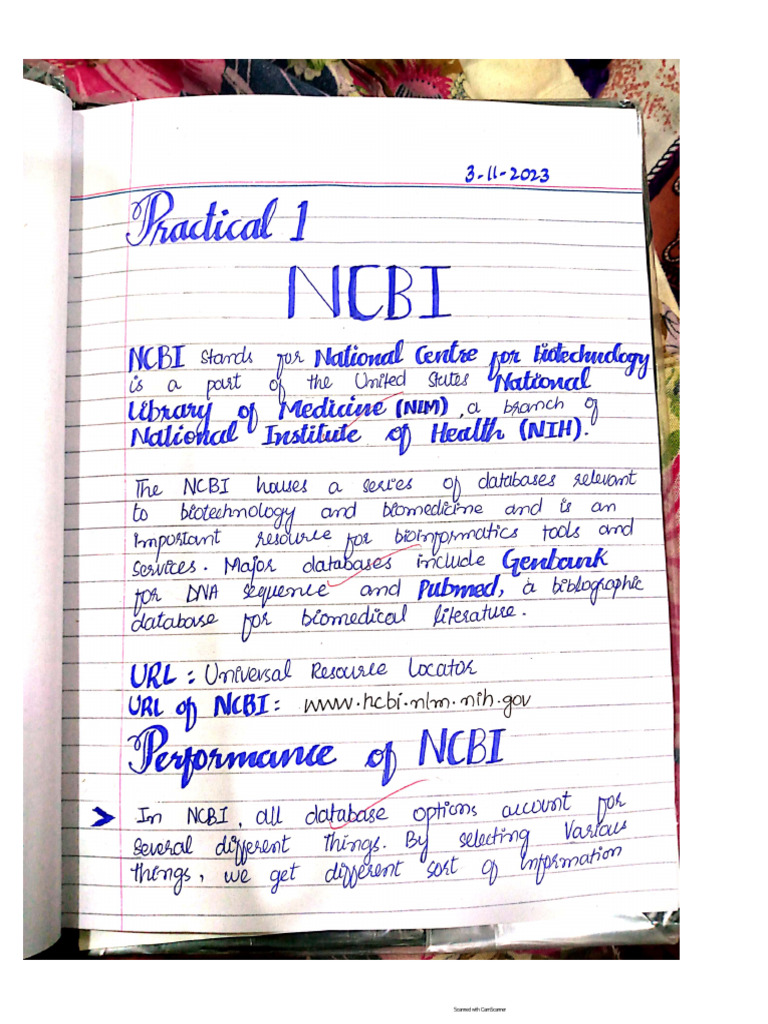 3-11-2023
Practical 1
NCBI
NCBI stands for National Centre for Biotechnology
is a part of the United States National
Library of Medicine (NLM), a branch of
National Institute of Health (NIH).
The NCBI houses a series of databases relevant
to biotechnology and biomedicine and is an
important resource for bioinformatics tools and
services. Major databases include Genbank
for DNA sequence and Pubmed, a bibliographic
database for biomedical literature.
URL : Universal Resource Locator
URL of NCBI : www.ncbi.nlm.nih.gov
Performance of NCBI
> In NCBI, all database options account for
several different things. By selecting various
things, we get different sort of information
Scanned with CamScanner